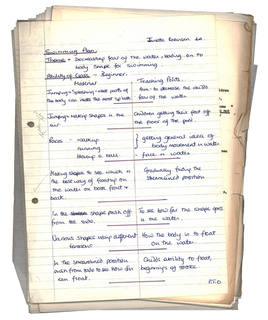 Swimming Plan
Theme - Decreasing fear of the water, leading on to
body shape for swimming.
Ability of Class - Beginner.
Material
Teaching Points.
Jumping + Splashing - what parts of
the body can make the most splash
Aim - to decrease the child's
fear of the water.
Jumping - Making shapes in the
air.
Children getting their feet off
the floor of the pool.
Races - walking
running
blowing a ball
getting general idea of
body movement in water
- face in water
Making shapes to see which is
the best way of floating on
the water on both front +
back.
Gradually finding the
streamlined position
In the shape push off
from the side.
To see how far the shape goes
in the water.
Various shapes using different
How the body is to float
on the water.
In the streamlined position
push from side to see how far
can float.
Child's ability to float,
beginnings of stroke.
P.T.O